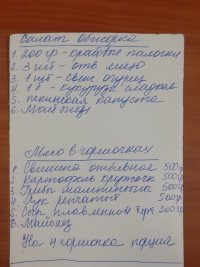 Салат обжорка
1. 200 гр - крабовые палочки
2. 3 шт - отв. яйцо
3. 1 шт - свеж. огурец
4. 1 б - кукуруза сладкая
5. пекинская капуста
6. Майонез
Мясо в горшочках
1. Свинина отбивное 500 гр
2. Картофель кружочк 500 гр
3. Грибы шампиньоны 500 гр
4. Лук репчатый 500 гр
5. Сыр плавленный 200 гр
6. Майонез
На 4 горшочка порция